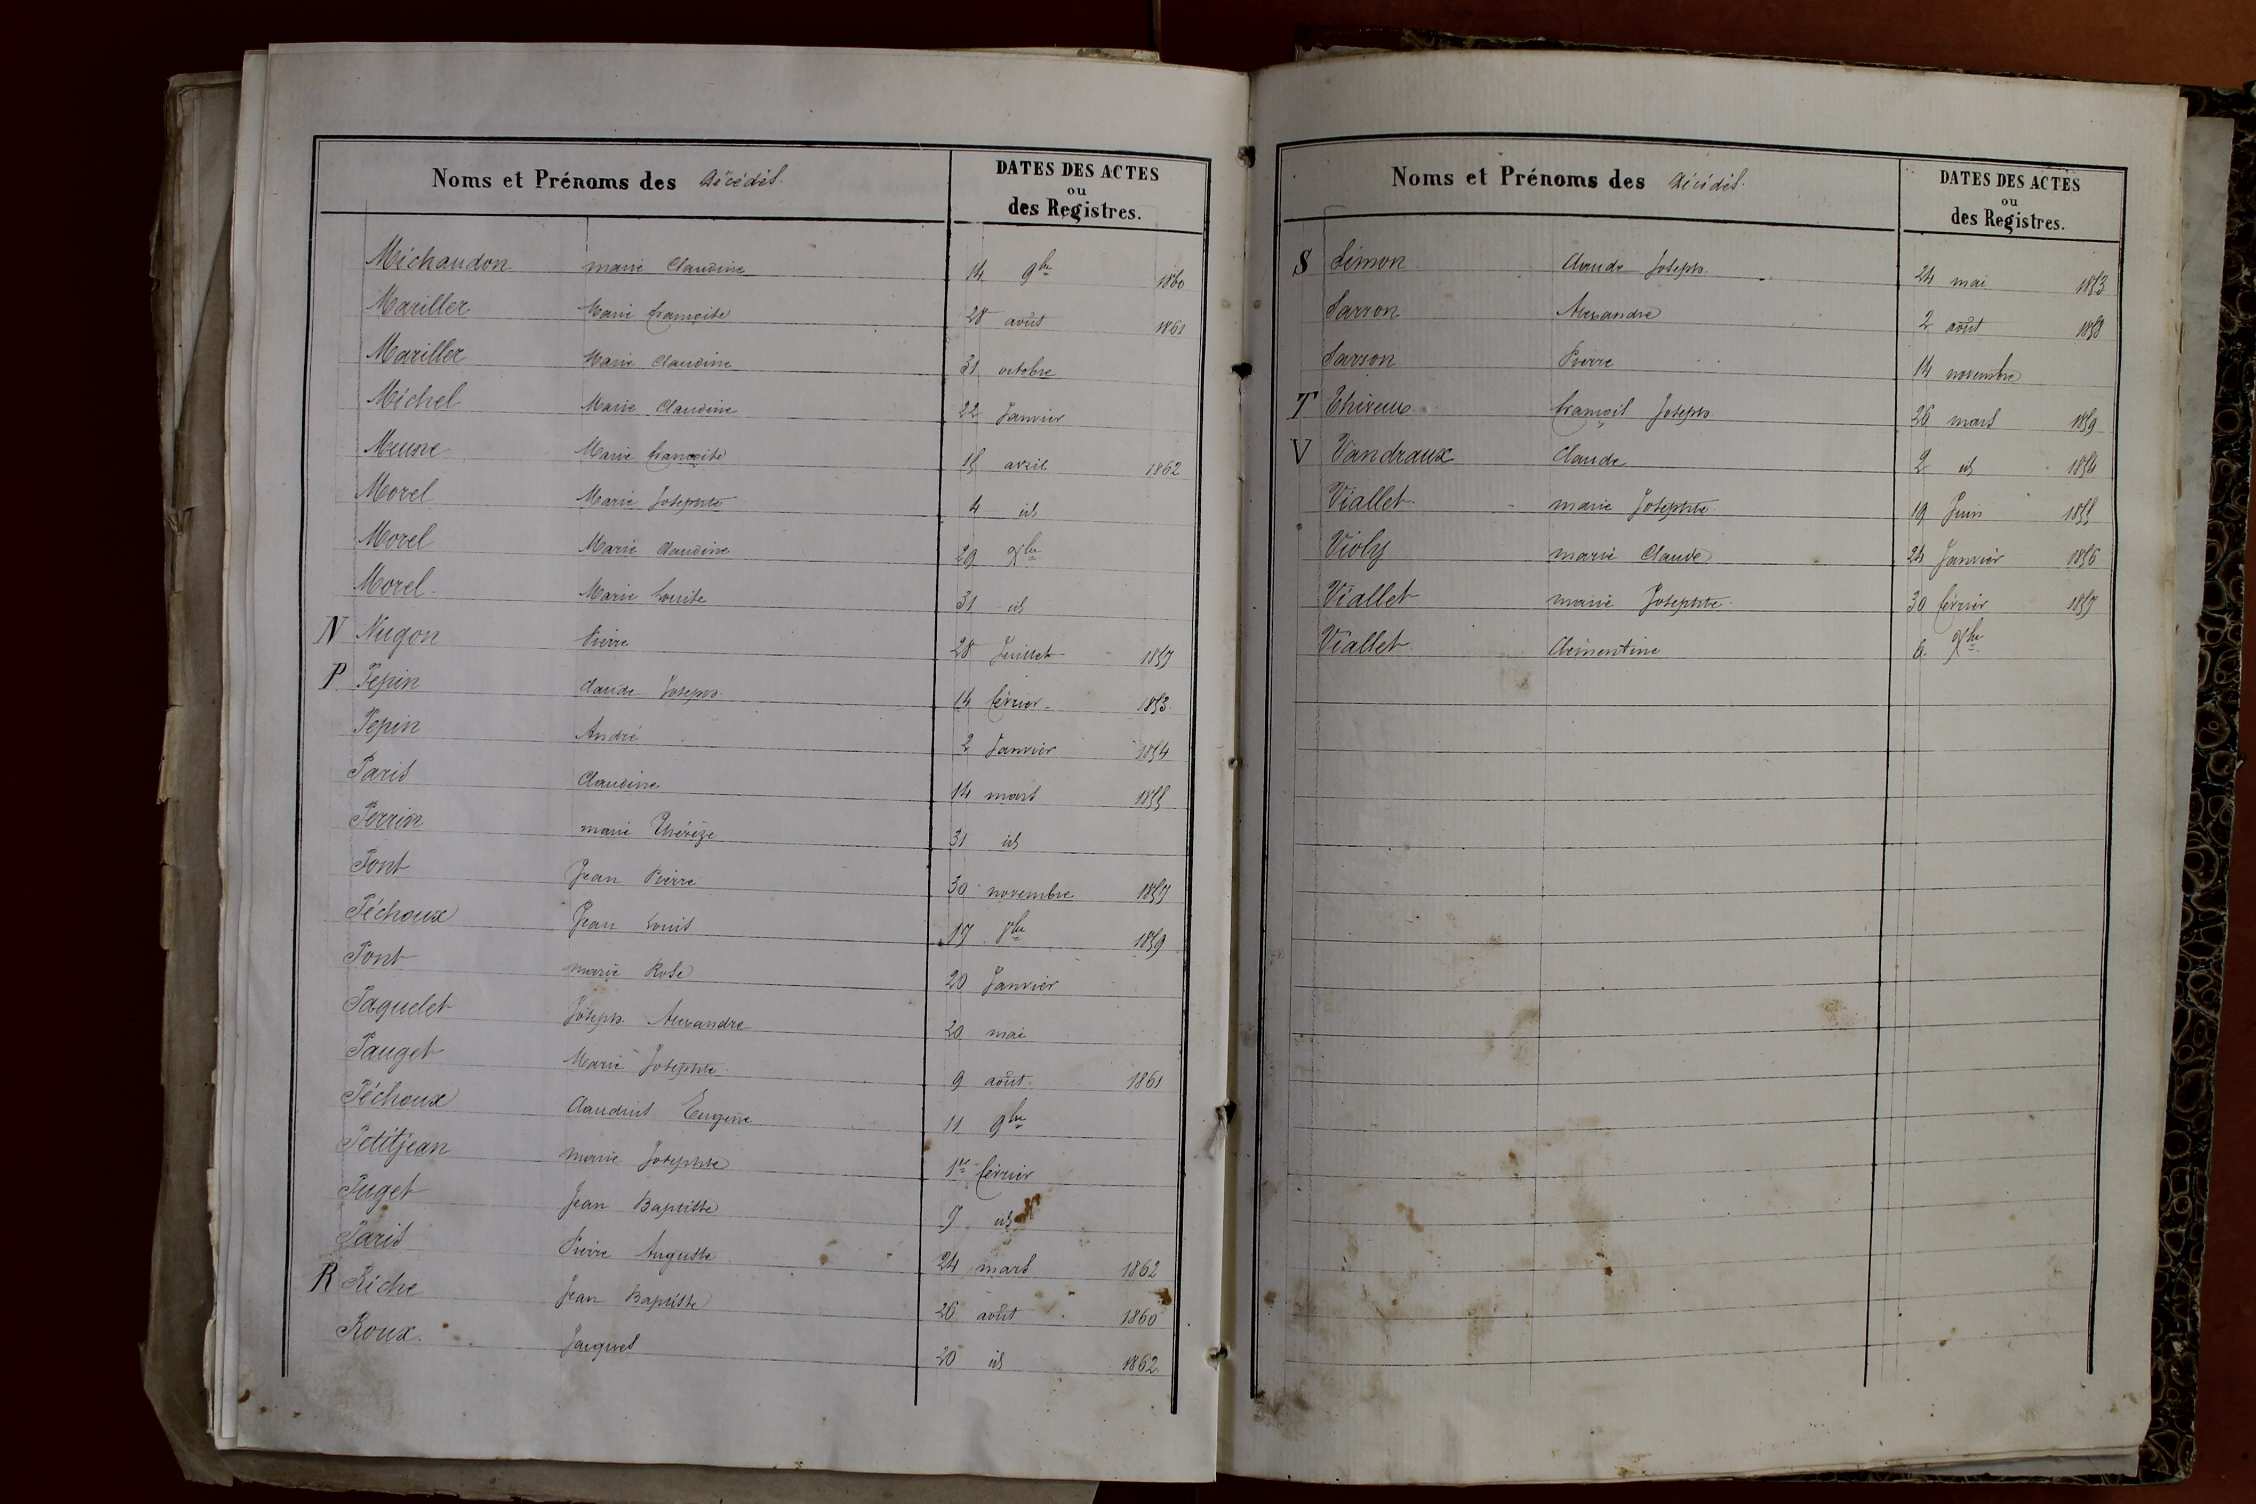 Noms et Prénoms des décédés.
DATES DES ACTES
ou
des Registres.
Michaudon marie Claudine 14 9bre 1860
Mariller Marie françoise 28 août 1861
Mariller Marie Claudine 31 octobre
Michel Marie Claudine 22 Janvier
Marie françoise 15 avril 1862
Morel Marie Josephte 4 id
Morel Marie Claudine 29 Xbre
Morel Marie Louise 31 id
N Nugon Pierre 28 Juillet 1857
P Pepin Claude Joseph 14 février 1853
Pepin André 2 Janvier 1854
Paris Claudine 14 mars 1855
Perrin marie Thérèze 31 id
Pont Jean Pierre 30 novembre 1857
Péchoux Jean Louis 17 8bre 1859
Pont marie Rose 20 Janvier
Paquelet Joseph Alexandre 20 mai
Pauget Marie Josephte 9 août 1861
Péchoux Claudius Eugène 11 9bre
Petitjean marie Josephte 1er février
Puget Jean Baptiste 7 id
Paris Pierre Auguste 24 mars 1862
R Riche Jean Baptiste 26 août 1860
Roux Jacques 20 id 1862
Noms et Prénoms des décédés.
DATES DES ACTES
ou
des Registres.
S Simon Claude Joseph 24 mai 1853
Sarron Alexandre 2 août 1858
Sarron Pierre 14 novembre
T françois Joseph 26 mars 1859
V Vandraux Claude 2 id 1854
Viallet marie Josephte 19 Juin 1855
Violy marie Claude 24 Janvier 1856
Viallet marie Josephte 30 février 1857
Viallet Clémentine 6 Xbre